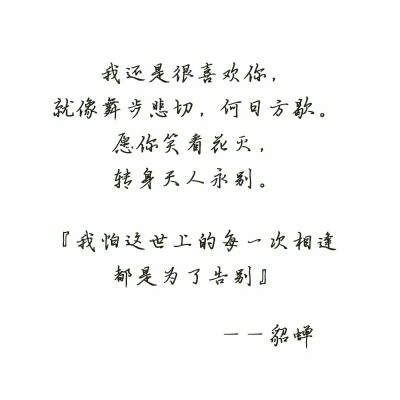 我还是很喜欢你，
就像舞步悲切，何日方歇。
愿你笑看花灭，
转身天人永别。
『我怕这世上的每一次相逢
都是为了告别』
——貂蝉